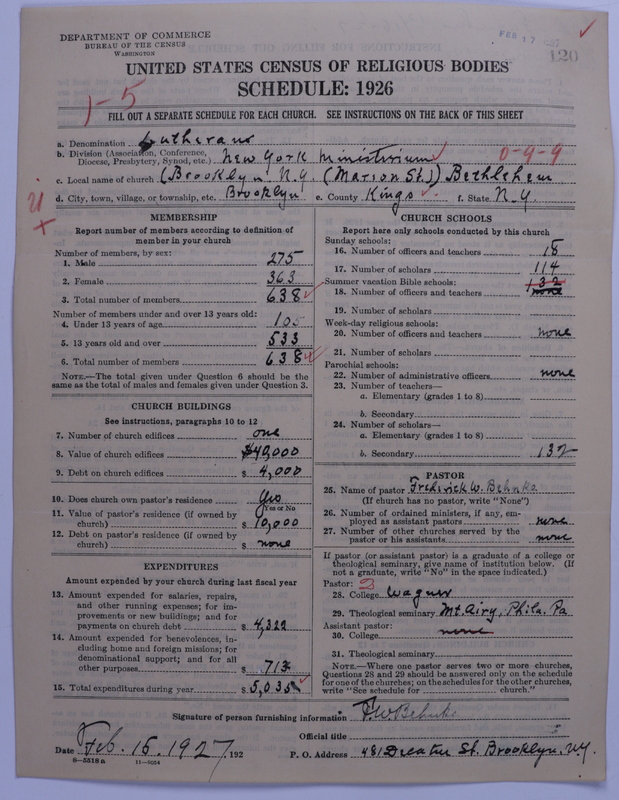 DEPARTMENT OF COMMERCE
BUREAU OF THE CENSUS
WASHINGTON
FEB 17 1927
120
UNITED STATES CENSUS OF RELIGIOUS BODIES
SCHEDULE: 1926
1-5
FILL OUT A SEPARATE SCHEDULE FOR EACH CHURCH. SEE INSTRUCTIONS ON THE BACK OF THIS SHEET
a. Denomination Lutheran
b. Division (Association, Conference, Diocese, Presbytery, Synod, etc.) New York Ministerium 0-9-9
c. Local name of church (Brooklyn N.Y. (Marion St.) Bethlehem
d. City, town, village, or township, etc. Brooklyn e. County Kings f. State N.Y.
MEMBERSHIP
Report number of members according to definition of member in your church
Number of members, by sex:
1. Male 275
2. Female 363
3. Total number of members 638
Number of members under and over 13 years old:
4. Under 13 years of age 105
5. 13 years old and over 533
6. Total number of members 638
NOTE.—The total given under Question 6 should be the same as the total of males and females given under Question 3.
CHURCH BUILDINGS
See instructions, paragraphs 10 to 12
7. Number of church edifices one
8. Value of church edifices $40,000
9. Debt on church edifices $ 4,000
10. Does church own pastor's residence Yes
Yes or No
11. Value of pastor's residence (if owned by church) $ 10,000
12. Debt on pastor's residence (if owned by church) $ none
EXPENDITURES
Amount expended by your church during last fiscal year
13. Amount expended for salaries, repairs, and other running expenses; for improvements or new buildings; and for payments on church debt $ 4,322
14. Amount expended for benevolences, including home and foreign missions; for denominational support; and for all other purposes $ 713
15. Total expenditures during year $ 5,035
CHURCH SCHOOLS
Report here only schools conducted by this church
Sunday schools:
16. Number of officers and teachers 18
17. Number of scholars 114
Summer vacation Bible schools: 132
18. Number of officers and teachers none
19. Number of scholars
Week-day religious schools:
20. Number of officers and teachers none
21. Number of scholars
Parochial schools:
22. Number of administrative officers none
23. Number of teachers—
a. Elementary (grades 1 to 8)
b. Secondary
24. Number of scholars—
a. Elementary (grades 1 to 8)
b. Secondary 132
PASTOR
25. Name of pastor Frederick W. Behnke
(If church has no pastor, write "None")
26. Number of ordained ministers, if any, employed as assistant pastors none
27. Number of other churches served by the pastor or his assistants none
If pastor (or assistant pastor) is a graduate of a college or theological seminary, give name of institution below. (If not a graduate, write "No" in the space indicated.)
Pastor: 2
28. College Wagner
29. Theological seminary Mt Airy, Phila. Pa
Assistant pastor:
30. College none
31. Theological seminary
NOTE.—Where one pastor serves two or more churches, Questions 28 and 29 should be answered only on the schedule for one of the churches; on the schedules for the other churches, write "See schedule for church."
Signature of person furnishing information F.W. Behnke
Official title
Date Feb. 16. 1927, 192
P. O. Address 481 Decatur St. Brooklyn, N.Y.
8-5518a 11-9034